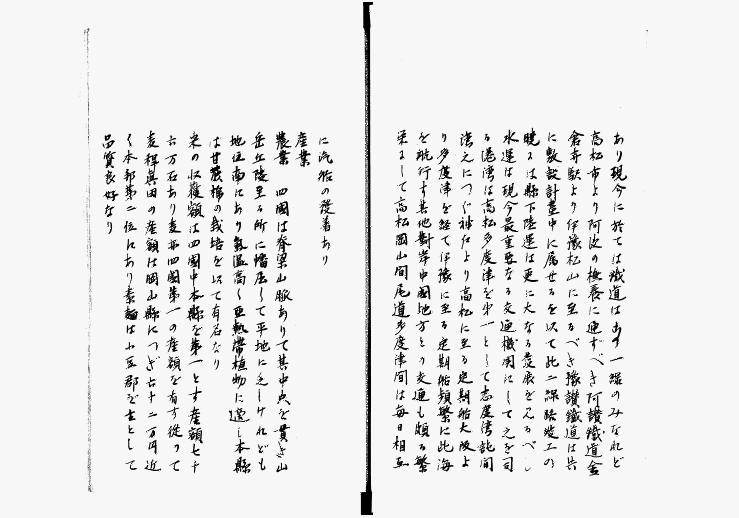 あり現今に於ては鐵道はあす一線のみなれど
高松市より阿波の板養に迎ずべき阿讃鐵道金
倉寺駅より伊豫松山に至るべき豫讃鐵道は共
に敷設計畫中に属せるを以て此二線路竣工の
暁には縣下陸運は更に大なる發展を見るべし
水運は現今最重要なる交通機関にして之を司
る港湾は高松多度津を第一として志度湾詫間
湾之につぐ神戸より高松に至る定期船大阪よ
り多度津を経て伊豫に至る定期船頻繁に此海
を航行す其他對岸中國地方との交通も頗る繁
栄にして高松岡山間尾道多度津間は毎日相互
に汽船の發着あり
産業
農業 四國は脊梁山脈ありて其中央を貫き山
岳丘陵至る所に播居して平地に乏しけれども
地位南にあり気温高く亜熱帯植物に適し本縣
は甘蔗棉の栽培を以て有名なり
米の収穫額は四國中本縣を第一とす産額七十
六万石あり麦亦四國第一の産額を有す従って
麦稈真田の産額は岡山縣につぎ六十二万円近
く本邦第二位にあり素麺は小豆郡を主として
品質良好なり